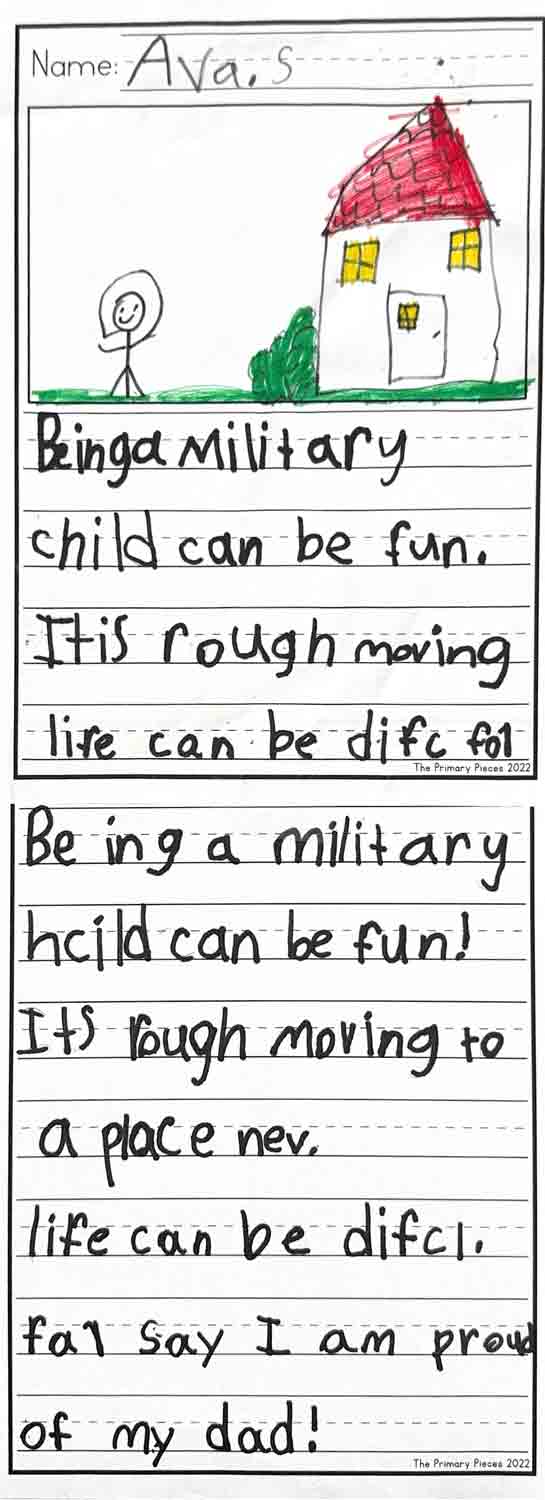 Name: Ava. S
Being a Military
child can be fun.
It is rough moving
life can be difc fol
The Primary Pieces 2022
Being a military
hcild can be fun!
Its rough moving to
a place nev.
life can be difcl.
fal say I am proud
of my dad!
The Primary Pieces 2022